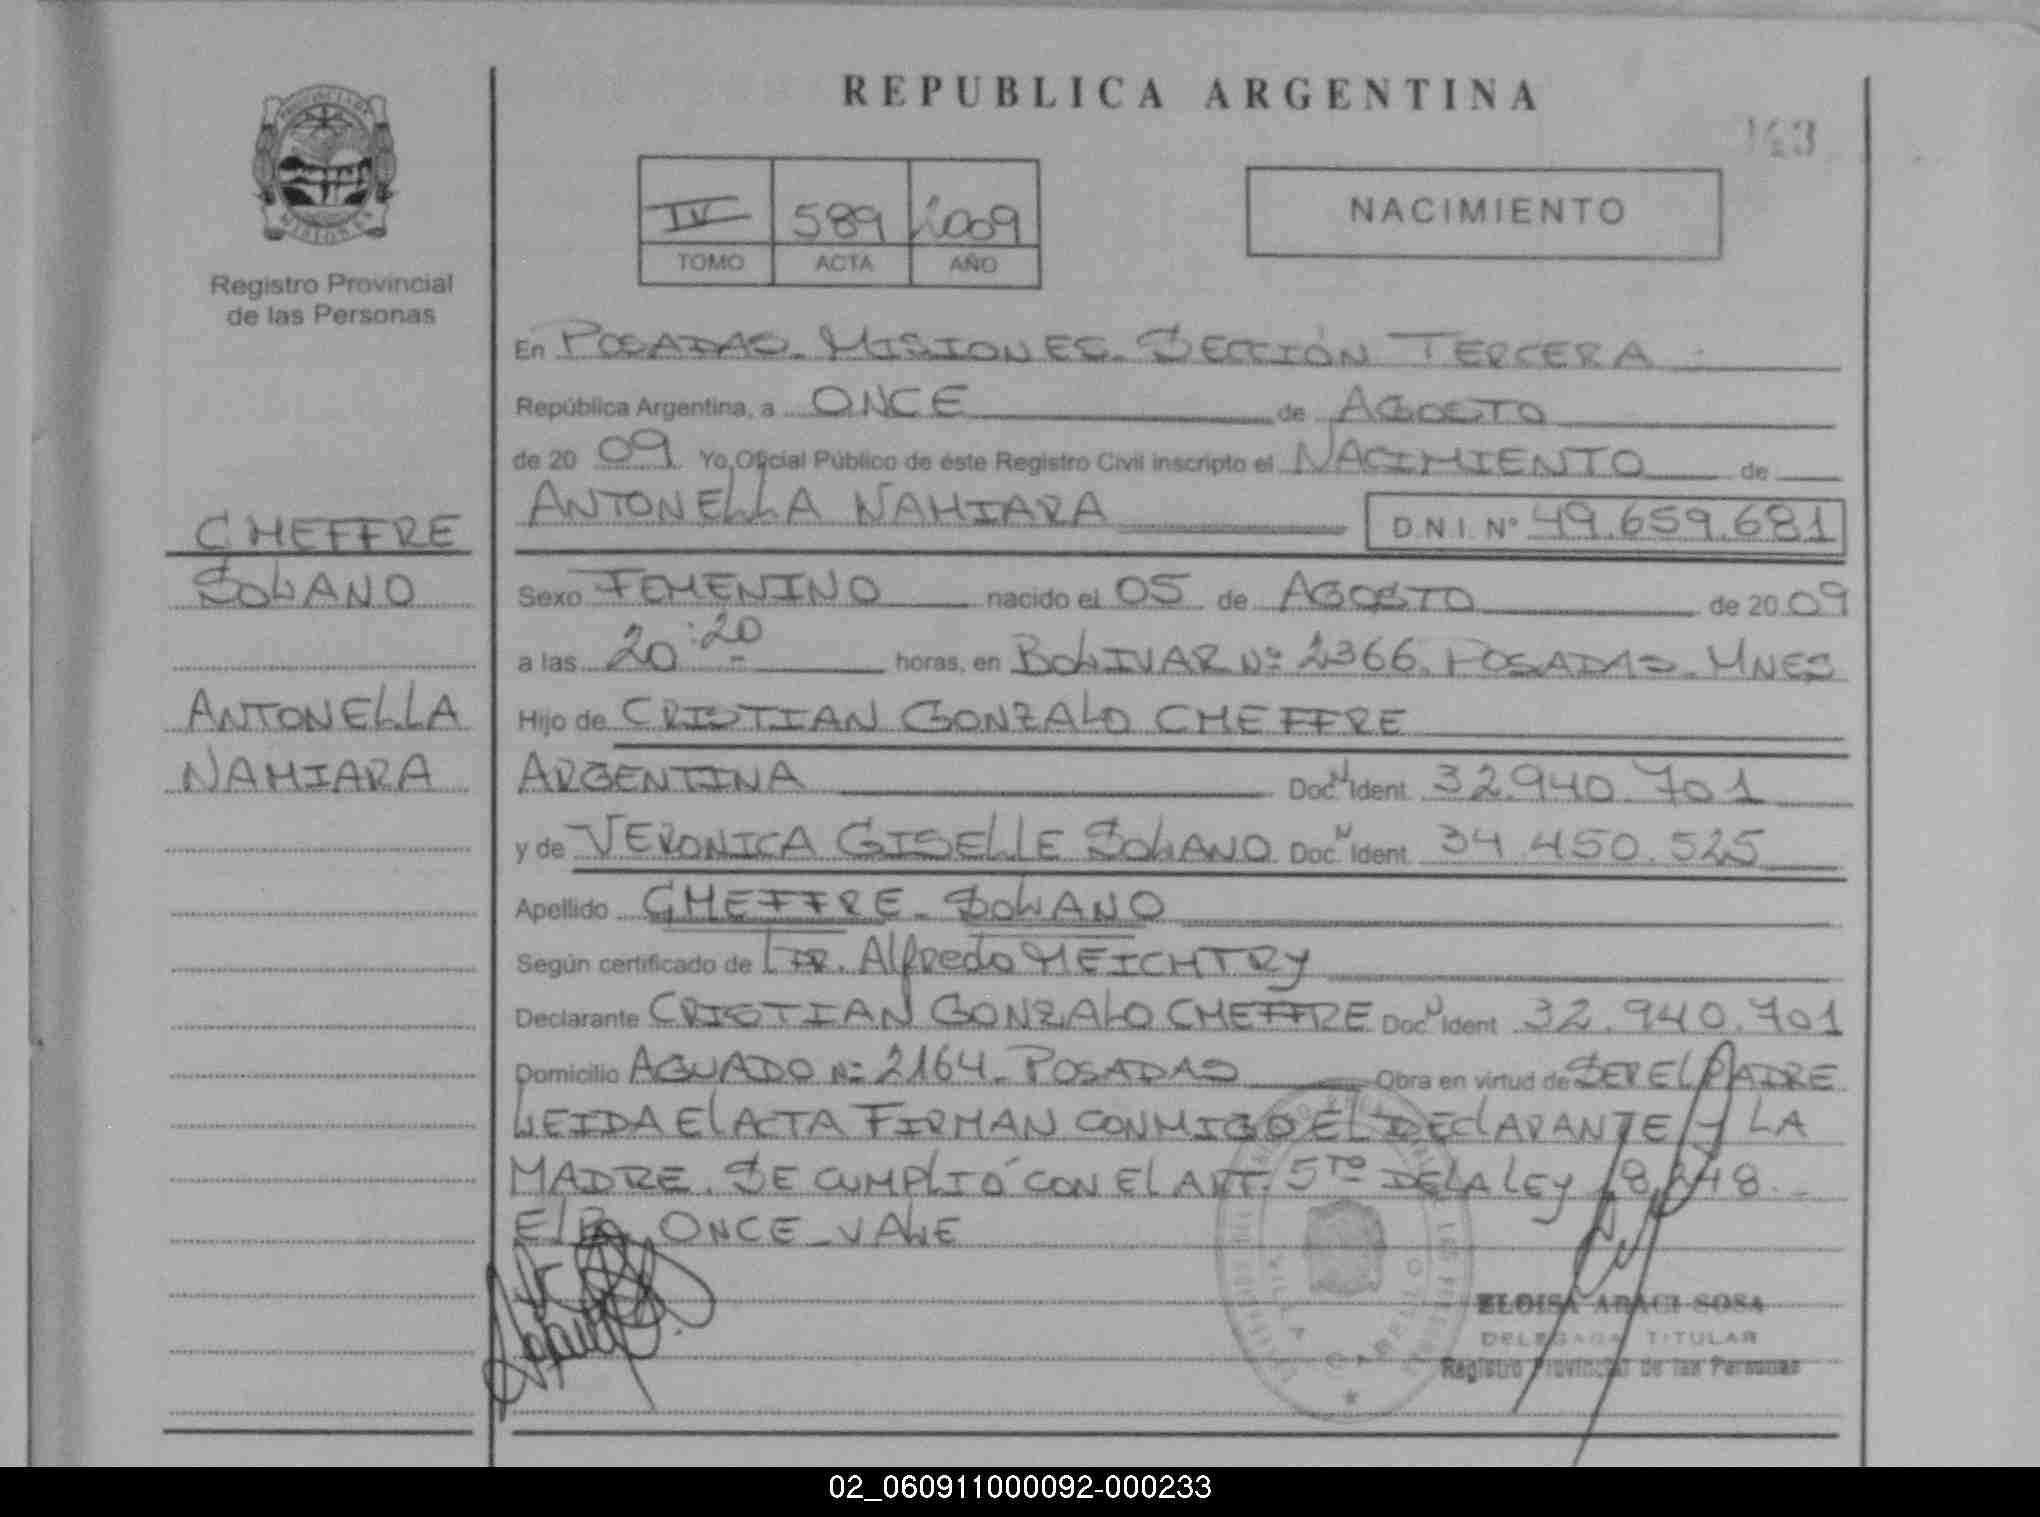 REPUBLICA ARGENTINA
PROVINCIA DE
MISIONES
Registro Provincial
de las Personas
IV 589 2009
TOMO ACTA AÑO
NACIMIENTO
En POSADAS. MISIONES. SECCIÓN TERCERA
República Argentina, a ONCE de AGOSTO
de 20 09 Yo, Oficial Público de éste Registro Civil inscripto el NACIMIENTO de
ANTONELLA NAHIARA D.N.I. Nº 49.659.681
CHEFFRE
SOLANO
ANTONELLA
NAHIARA
Sexo FEMENINO nacido el 05 de AGOSTO de 20 09
a las 20:20 horas, en BOLIVAR Nº 2366. POSADAS. MNES
Hijo de CRISTIAN GONZALO CHEFFRE
ARGENTINA Doc. N Ident. 32.940.701
y de VERONICA GISELLE SOLANO Doc. N Ident. 34.450.525
Apellido CHEFFRE - SOLANO
Según certificado de DR. Alfredo MEICHTRY
Declarante CRISTIAN GONZALO CHEFFRE Doc. N Ident. 32.940.701
Domicilio AGUADO Nº 2164. POSADAS Obra en virtud de SER EL PADRE
LEIDA El ACTA FIRMAN CONMIGO EL DEClARANTE y LA
MADRE. SE CUMPLIÓ CON El ART. 5TO DE LA LEY 18.248.
ONCE - VALE
ELOISA ARACI SOSA
DELEGADA TITULAR
Registro Provincial de las Personas
02_060911000092-000233